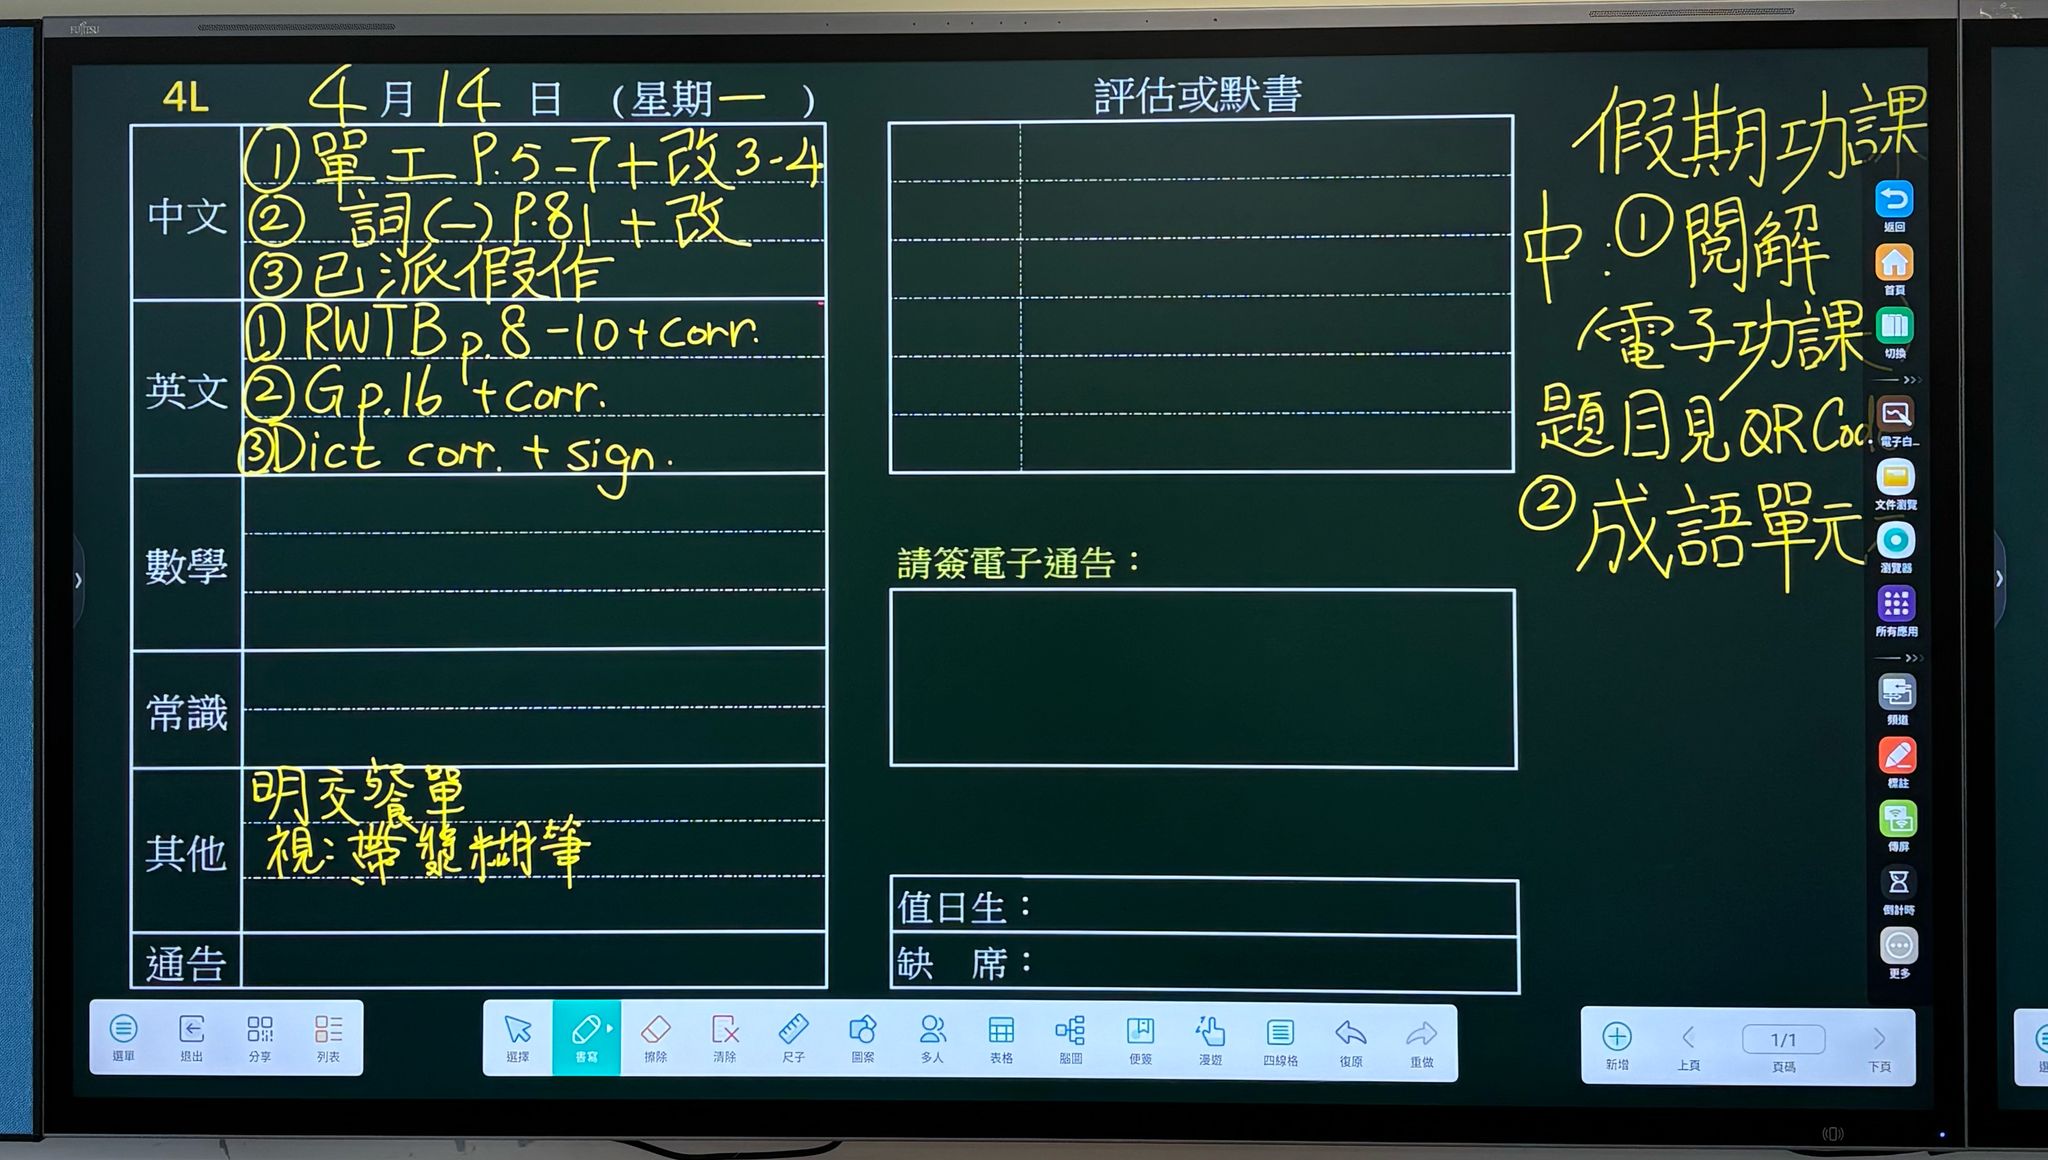 FUJITSU
4L 4月14日 (星期一)
中文
①單工 P.5-7+改3-4
② 詞(一) P.81 + 改
③已派假作
英文
① RWTB p.8-10+corr.
② G p.16 +corr.
③Dict corr. + sign.
數學
常識
其他
明交餐單
視:帶漿糊筆
通告
評估或默書
請簽電子通告：
值日生：
缺 席：
假期功課
中:①閱解
(電子功課
題目見QR Code
②成語單元
返回
首頁
切換
電子白...
文件瀏覽
瀏覽器
所有應用
頻道
標註
傳屏
倒計時
更多
選單 退出 分享 列表
選擇 書寫 擦除 清除 尺子 圖案 多人 表格 腦圖 便簽 漫遊 四線格 復原 重做
新增 上頁 1/1 頁碼 下頁